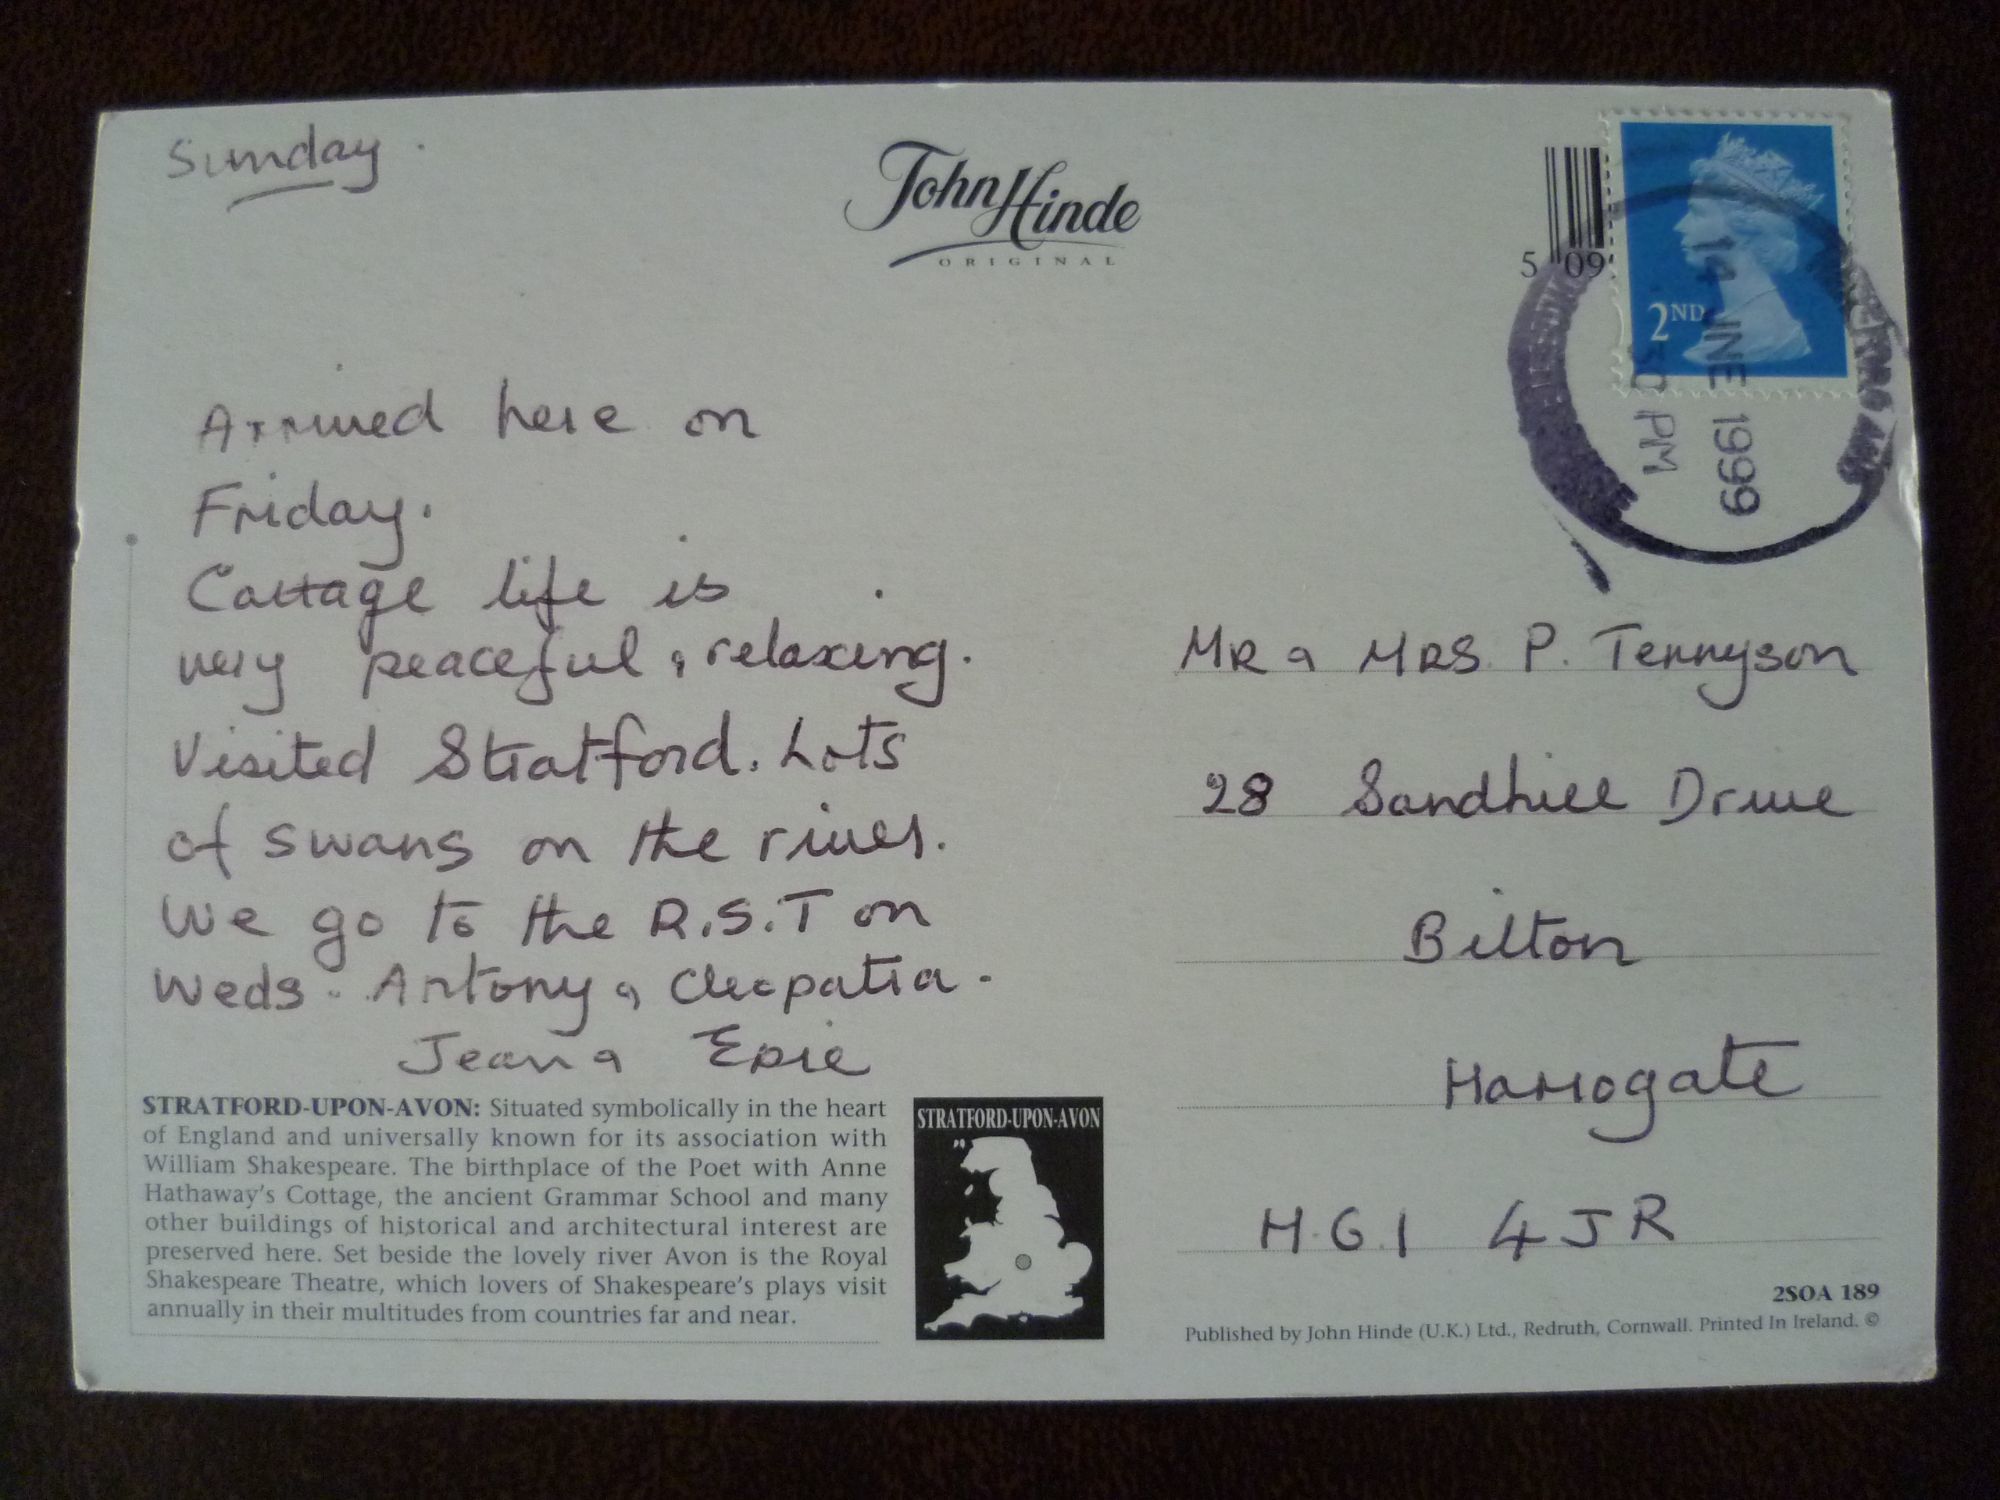 Sunday.
John Hinde
ORIGINAL
5 09
2ND
14 JNE 1999
30 PM
Arrived here on
Friday.
Cottage life is
very peaceful & relaxing.
Visited Stratford. Lots
of swans on the river.
We go to the R.S.T on
Weds. Antony & Cleopatra.
Jean & Eric
Mr & Mrs P. Tennyson
28 Sandhill Drive
Bilton
Harrogate
H.G.1 4JR
STRATFORD-UPON-AVON: Situated symbolically in the heart
of England and universally known for its association with
William Shakespeare. The birthplace of the Poet with Anne
Hathaway's Cottage, the ancient Grammar School and many
other buildings of historical and architectural interest are
preserved here. Set beside the lovely river Avon is the Royal
Shakespeare Theatre, which lovers of Shakespeare's plays visit
annually in their multitudes from countries far and near.
STRATFORD-UPON-AVON
2SOA 189
Published by John Hinde (U.K.) Ltd., Redruth, Cornwall. Printed In Ireland. ©